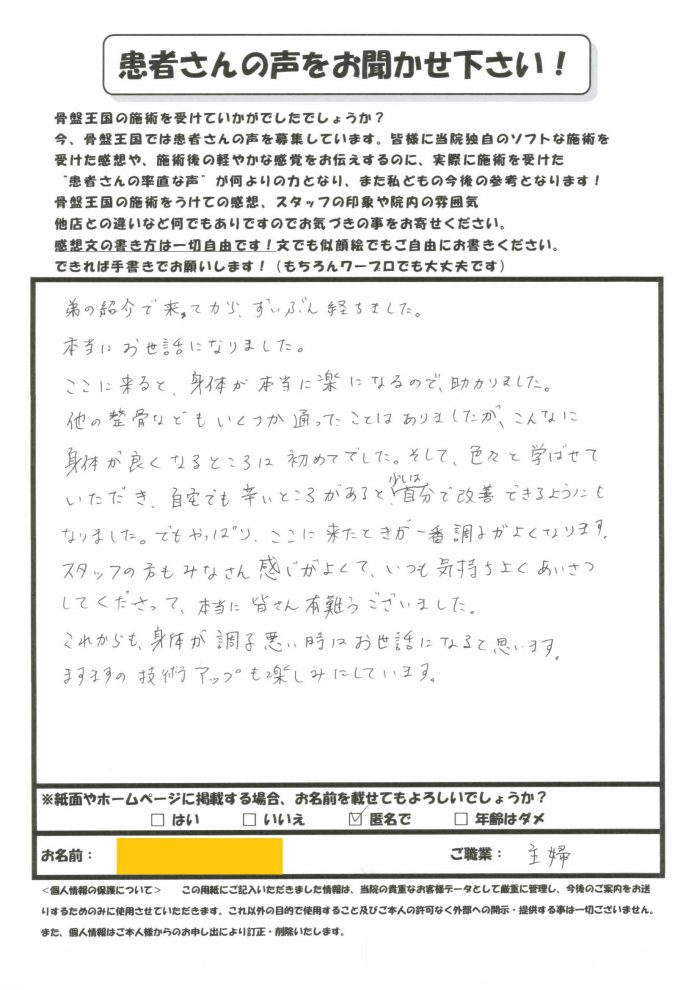 患者さんの声をお聞かせ下さい！
骨盤王国の施術を受けていかがでしたでしょうか？
今、骨盤王国では患者さんの声を募集しています。皆様に当院独自のソフトな施術を
受けた感想や、施術後の軽やかな感覚をお伝えするのに、実際に施術を受けた
"患者さんの率直な声"が何よりの力となり、また私どもの今後の参考となります！
骨盤王国の施術をうけての感想、スタッフの印象や院内の雰囲気
他店との違いなど何でもありですのでお気づきの事をお寄せください。
感想文の書き方は一切自由です！文でも似顔絵でもご自由にお書きください。
できれば手書きでお願いします！（もちろんワープロでも大丈夫です）
弟の紹介で来てから、ずいぶん経ちました。
本当にお世話になりました。
ここに来ると、身体が本当に楽になるので、助かりました。
他の整骨などもいくつか通ったことはありましたが、こんなに
身体が良くなるところは初めてでした。そして、色々と学ばせて
いただき、自宅でも辛いところがあると、少しは自分で改善できるようにも
なりました。でもやっぱり、ここに来たときが一番調子がよくなります。
スタッフの方もみなさん感じがよくて、いつも気持ちよくあいさつ
してくださって、本当に皆さん有難うございました。
これからも、身体が調子悪い時はお世話になると思います。
ますますの技術アップも楽しみにしています。
※紙面やホームページに掲載する場合、お名前を載せてもよろしいでしょうか？
□ はい □ いいえ ☑ 匿名で □ 年齢はダメ
お名前： ご職業： 主婦
＜個人情報の保護について＞ この用紙にご記入いただきました情報は、当院の貴重なお客様データとして厳重に管理し、今後のご案内をお送
りするためのみに使用させていただきます。これ以外の目的で使用すること及びご本人の許可なく外部への開示・提供する事は一切ございません。
また、個人情報はご本人様からのお申し出により訂正・削除いたします。